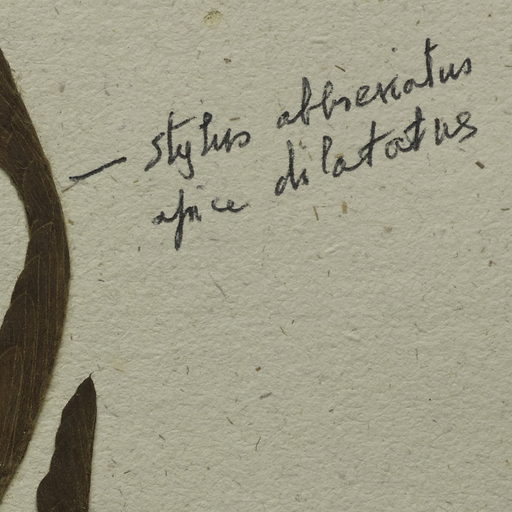 — stylus abbreviatus
apice dilatatus